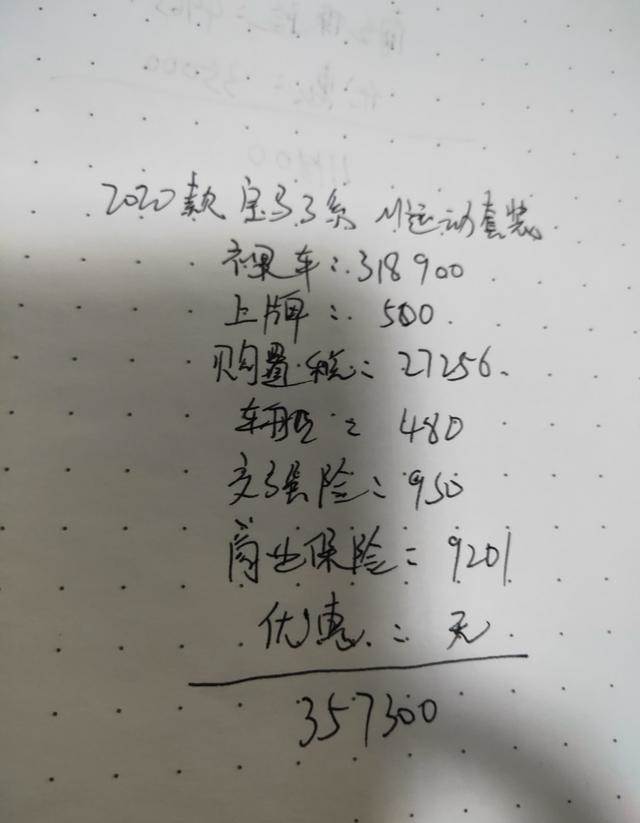 2020款宝马3系 M运动套装
裸车: 318900
上牌: 500
购置税: 27256
车船: 480
交强险: 950
商业保险: 9201
优惠: 无
357300